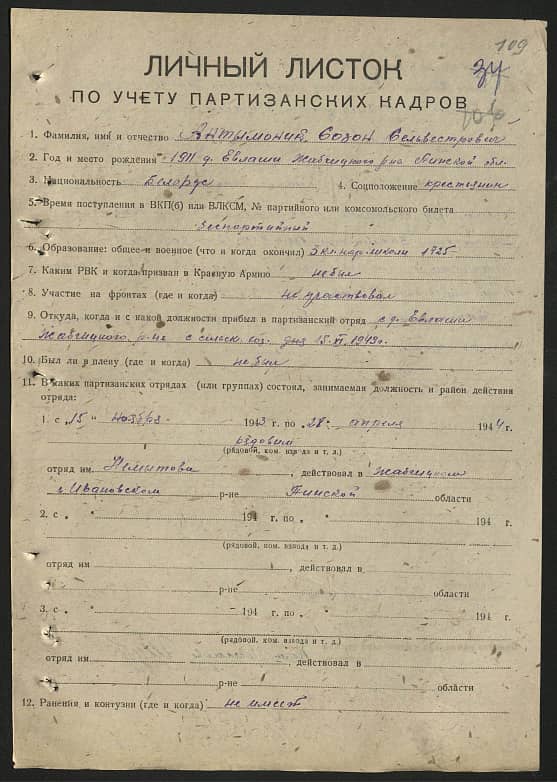 109
34
ЛИЧНЫЙ ЛИСТОК
ПО УЧЕТУ ПАРТИЗАНСКИХ КАДРОВ
1. Фамилия, имя и отчество Антымоник Созон Сельвестрович
2. Год и место рождения 1911 д. Евлаши Жабчицкого р-на Пинской обл.
3. Национальность Белорус 4. Соцположение крестьянин
5. Время поступления в ВКП(б) или ВЛКСМ, № партийного или комсомольского билета
беспартийный
6. Образование: общее и военное (что и когда окончил) 3 кл. нар. школы 1925
7. Каким РВК и когда призван в Красную Армию не был
8. Участие на фронтах (где и когда) не участвовал
9. Откуда, когда и с какой должности прибыл в партизанский отряд с д. Евлаши
Жабчицкого р-на с сельск. хоз. дня 15.XI.1943г.
10. Был ли в плену (где и когда) не был
11. В каких партизанских отрядах (или группах) состоял, занимаемая должность и район действия
отряда:
1. с „15" ноября 1943 г. по „28" апреля 1944 г.
рядовым
(рядовой, ком. взвода и т. д.)
отряд им , действовал в Жабчицком
и Ивановском р-не Пинской области
2. с „ " 194 г. по „ " 194 г.
(рядовой, ком. взвода и т. д.)
отряд им , действовал в
р-не области
3. с „ " 194 г. по „ " 194 г.
(рядовой, ком. взвода и т. д.)
отряд им , действовал в
р-не области
12. Ранения и контузии (где и когда) не имеет